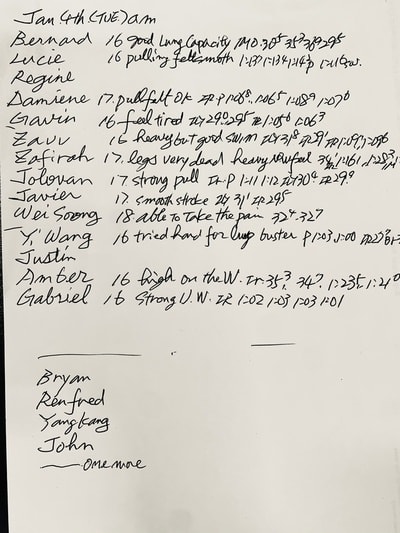 Jan 4th (TUE) am
Bernard 16 good Lung Capacity 30⁵ 35³ 29⁵
Lucie 16 pulling felt smoth 1:37 1:34
Regine
Damiene 17. pull felt OK P 1:06⁵ 1:08⁹ 1:07⁰
Gavin 16 feel tired 29⁰ 29⁵ 1:05⁰ 1:06³
16 heavy but good swim 31⁸
Zafirah 17. legs very dead heavy
Jolovan 17 strong pull P 1:11 1:12 30⁴ 29⁹
Javier 17. smooth stroke 31¹ 29⁵
Wei Soong 18 able to take the pain 32⁴ 32⁷
Yi Wang 16 tried hard for lung buster P 1:03 1:00
Justin
Amber 16 high on the W. 35³ 34⁷ 1:23⁵
Gabriel 16 Strong U.W. 1:02 1:03 1:03 1:01
Bryan
Renfred
Yangkang
John
—— one more